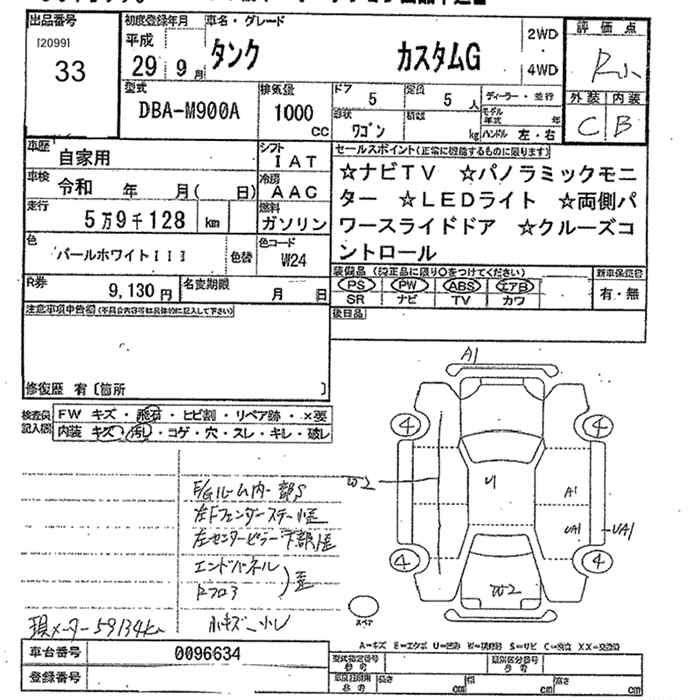 出品番号 初度登録年月 車名・グレード 評価点
[20991] 平成 タンク カスタムG 2WD
33 29 9月 4WD R
外装 内装
C B
型式 排気量 ドア 5 定員 5 人 ディーラー・並行
DBA-M900A 1000 cc 形状 ワゴン 積載 kg モデル年式 年
ハンドル 左・右
車歴 自家用 シフト IAT セールスポイント(正常に機能するものに限ります)
車検 令和 年 月( 日) 冷房 AAC ☆ナビTV ☆パノラミックモニ
走行 5万9千128 km 燃料 ガソリン ター ☆LEDライト ☆両側パ
ワースライドドア ☆クルーズコ
ントロール
色 パールホワイトIII 色替 色コード W24
R券 9,130円 名変期限 月 日
装備品(純正品に限り○をつけてください) 新車保証書
PS PW ABS エアB 有・無
SR ナビ TV カワ
注意事項申告欄(不具合内容等は具体的に記入して下さい) 後日品
修復歴 有〔箇所 〕
検査員記入欄 FW キズ・飛石・ヒビ割・リペア跡・×要
内装 キズ・汚れ・コゲ・穴・スレ・キレ・破レ
A1
4 4
W2 U A1
UA1 UA1
4 4
W2
スペア
F/Gルーム内一部S
左Fフェンダーステー歪
左センターピラー下部歪
エンドパネル
Rフロア 歪
小キズ 小レ
現メーター59134km
A=キズ E=エクボ U=凹み W=補修跡 S=サビ C=腐食 XX=交換済
車台番号 0096634 型式指定番号 参考 類別区分番号 参考
登録番号 参考 長さ cm 幅 cm 高さ cm